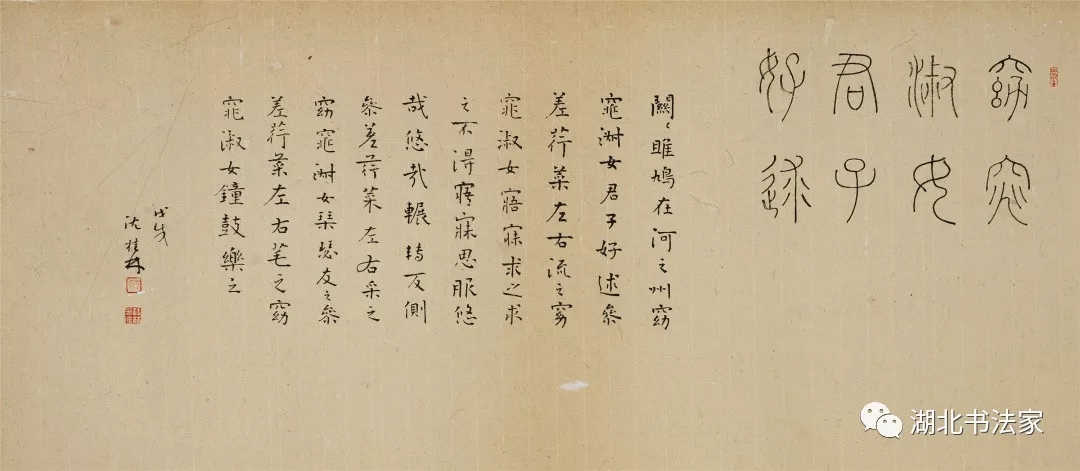 窈窕
淑女
君子
好逑
關〻雎鳩在河之州窈
窕淑女君子好逑參
差荇菜左右流之窈
窕淑女寤寐求之求
之不得寤寐思服悠
哉悠哉輾轉反側
參差荇菜左右采之
窈窕淑女琴瑟友之參
差荇菜左右芼之窈
窕淑女鐘鼓樂之
戊戌
沈
湖北书法家